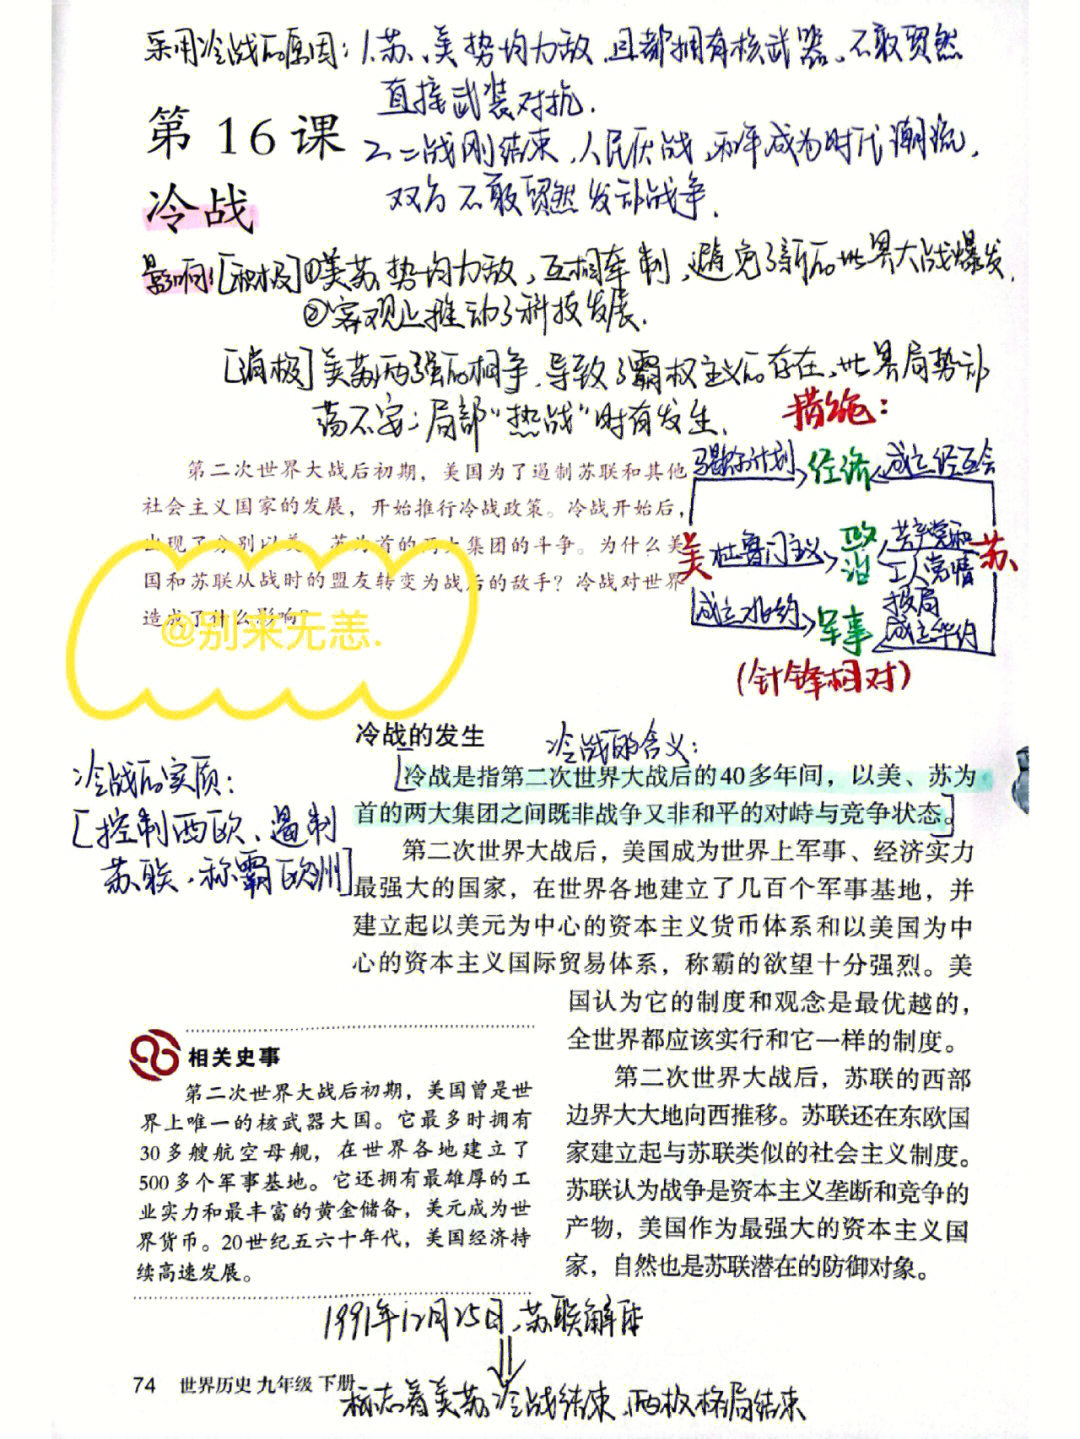 采用冷战的原因：1.苏、美势均力敌，且都拥有核武器，不敢贸然
直接武装对抗.
第 16 课
2.二战刚结束，人民厌战，和平成为时代潮流，
双方不敢贸然发动战争.
冷战
影响:[积极]①美苏势均力敌，互相牵制，避免了新的世界大战爆发.
②客观上推动了科技发展.
[消极]美苏两强的相争，导致了霸权主义的存在，世界局势动
荡不安；局部“热战”时有发生.
措施：
第二次世界大战后初期，美国为了遏制苏联和其他
社会主义国家的发展，开始推行冷战政策。冷战开始后，
出现了分别以美、苏为首的两大集团的斗争。为什么美
国和苏联从战时的盟友转变为战后的敌手？冷战对世界
造成了什么影响？
@别来无恙.
马歇尔计划 经济 成立经互会
美 杜鲁门主义 政治 共产党和
工人党情
报局
苏
成立北约 军事 成立华约
(针锋相对)
冷战的发生
冷战的含义：
[冷战是指第二次世界大战后的40多年间，以美、苏为
首的两大集团之间既非战争又非和平的对峙与竞争状态。]
冷战的实质：
[控制西欧、遏制
苏联，称霸欧洲]
第二次世界大战后，美国成为世界上军事、经济实力
最强大的国家，在世界各地建立了几百个军事基地，并
建立起以美元为中心的资本主义货币体系和以美国为中
心的资本主义国际贸易体系，称霸的欲望十分强烈。美
国认为它的制度和观念是最优越的，
全世界都应该实行和它一样的制度。
第二次世界大战后，苏联的西部
边界大大地向西推移。苏联还在东欧国
家建立起与苏联类似的社会主义制度。
苏联认为战争是资本主义垄断和竞争的
产物，美国作为最强大的资本主义国
家，自然也是苏联潜在的防御对象。
相关史事
第二次世界大战后初期，美国曾是世
界上唯一的核武器大国。它最多时拥有
30多艘航空母舰，在世界各地建立了
500多个军事基地。它还拥有最雄厚的工
业实力和最丰富的黄金储备，美元成为世
界货币。20世纪五六十年代，美国经济持
续高速发展。
1991年12月25日，苏联解体
74 世界历史 九年级 下册
标志着美苏冷战结束，两极格局结束